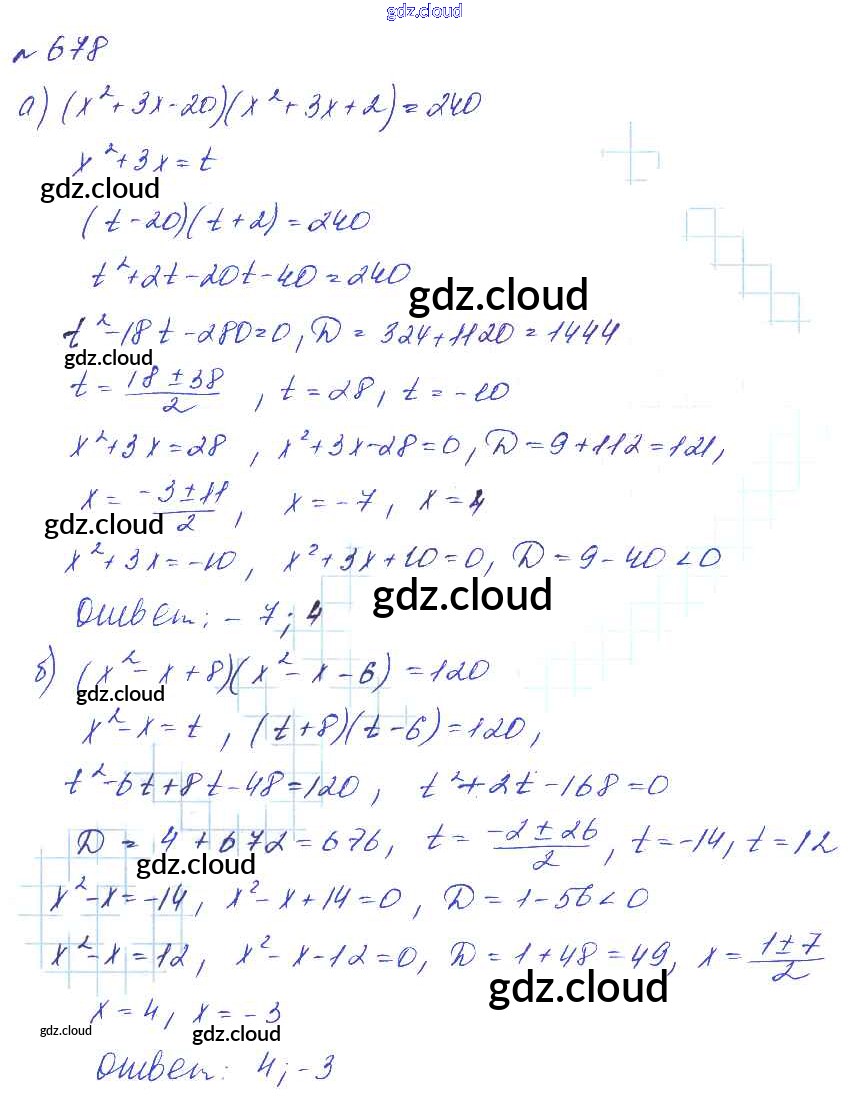 gdz.cloud
№ 678
а) (x²+3x-20)(x²+3x+2)=240
x²+3x=t
gdz.cloud
(t-20)(t+2)=240
t²+2t-20t-40=240
gdz.cloud
t²-18t-280=0, D=324+1120=1444
gdz.cloud
t=(18±38)/2, t=28, t=-10
x²+3x=28, x²+3x-28=0, D=9+112=121,
x=(-3±11)/2, x=-7, x=4
gdz.cloud
x²+3x=-10, x²+3x+10=0, D=9-40<0
gdz.cloud
Ответ: -7; 4
б) (x²-x+8)(x²-x-6)=120
gdz.cloud
x²-x=t, (t+8)(t-6)=120,
t²-6t+8t-48=120, t²+2t-168=0
D=4+672=676, t=(-2±26)/2, t=-14, t=12
gdz.cloud
x²-x=-14, x²-x+14=0, D=1-56<0
x²-x=12, x²-x-12=0, D=1+48=49, x=(1±7)/2
gdz.cloud
x=4, x=-3
gdz.cloud
gdz.cloud
Ответ: 4; -3